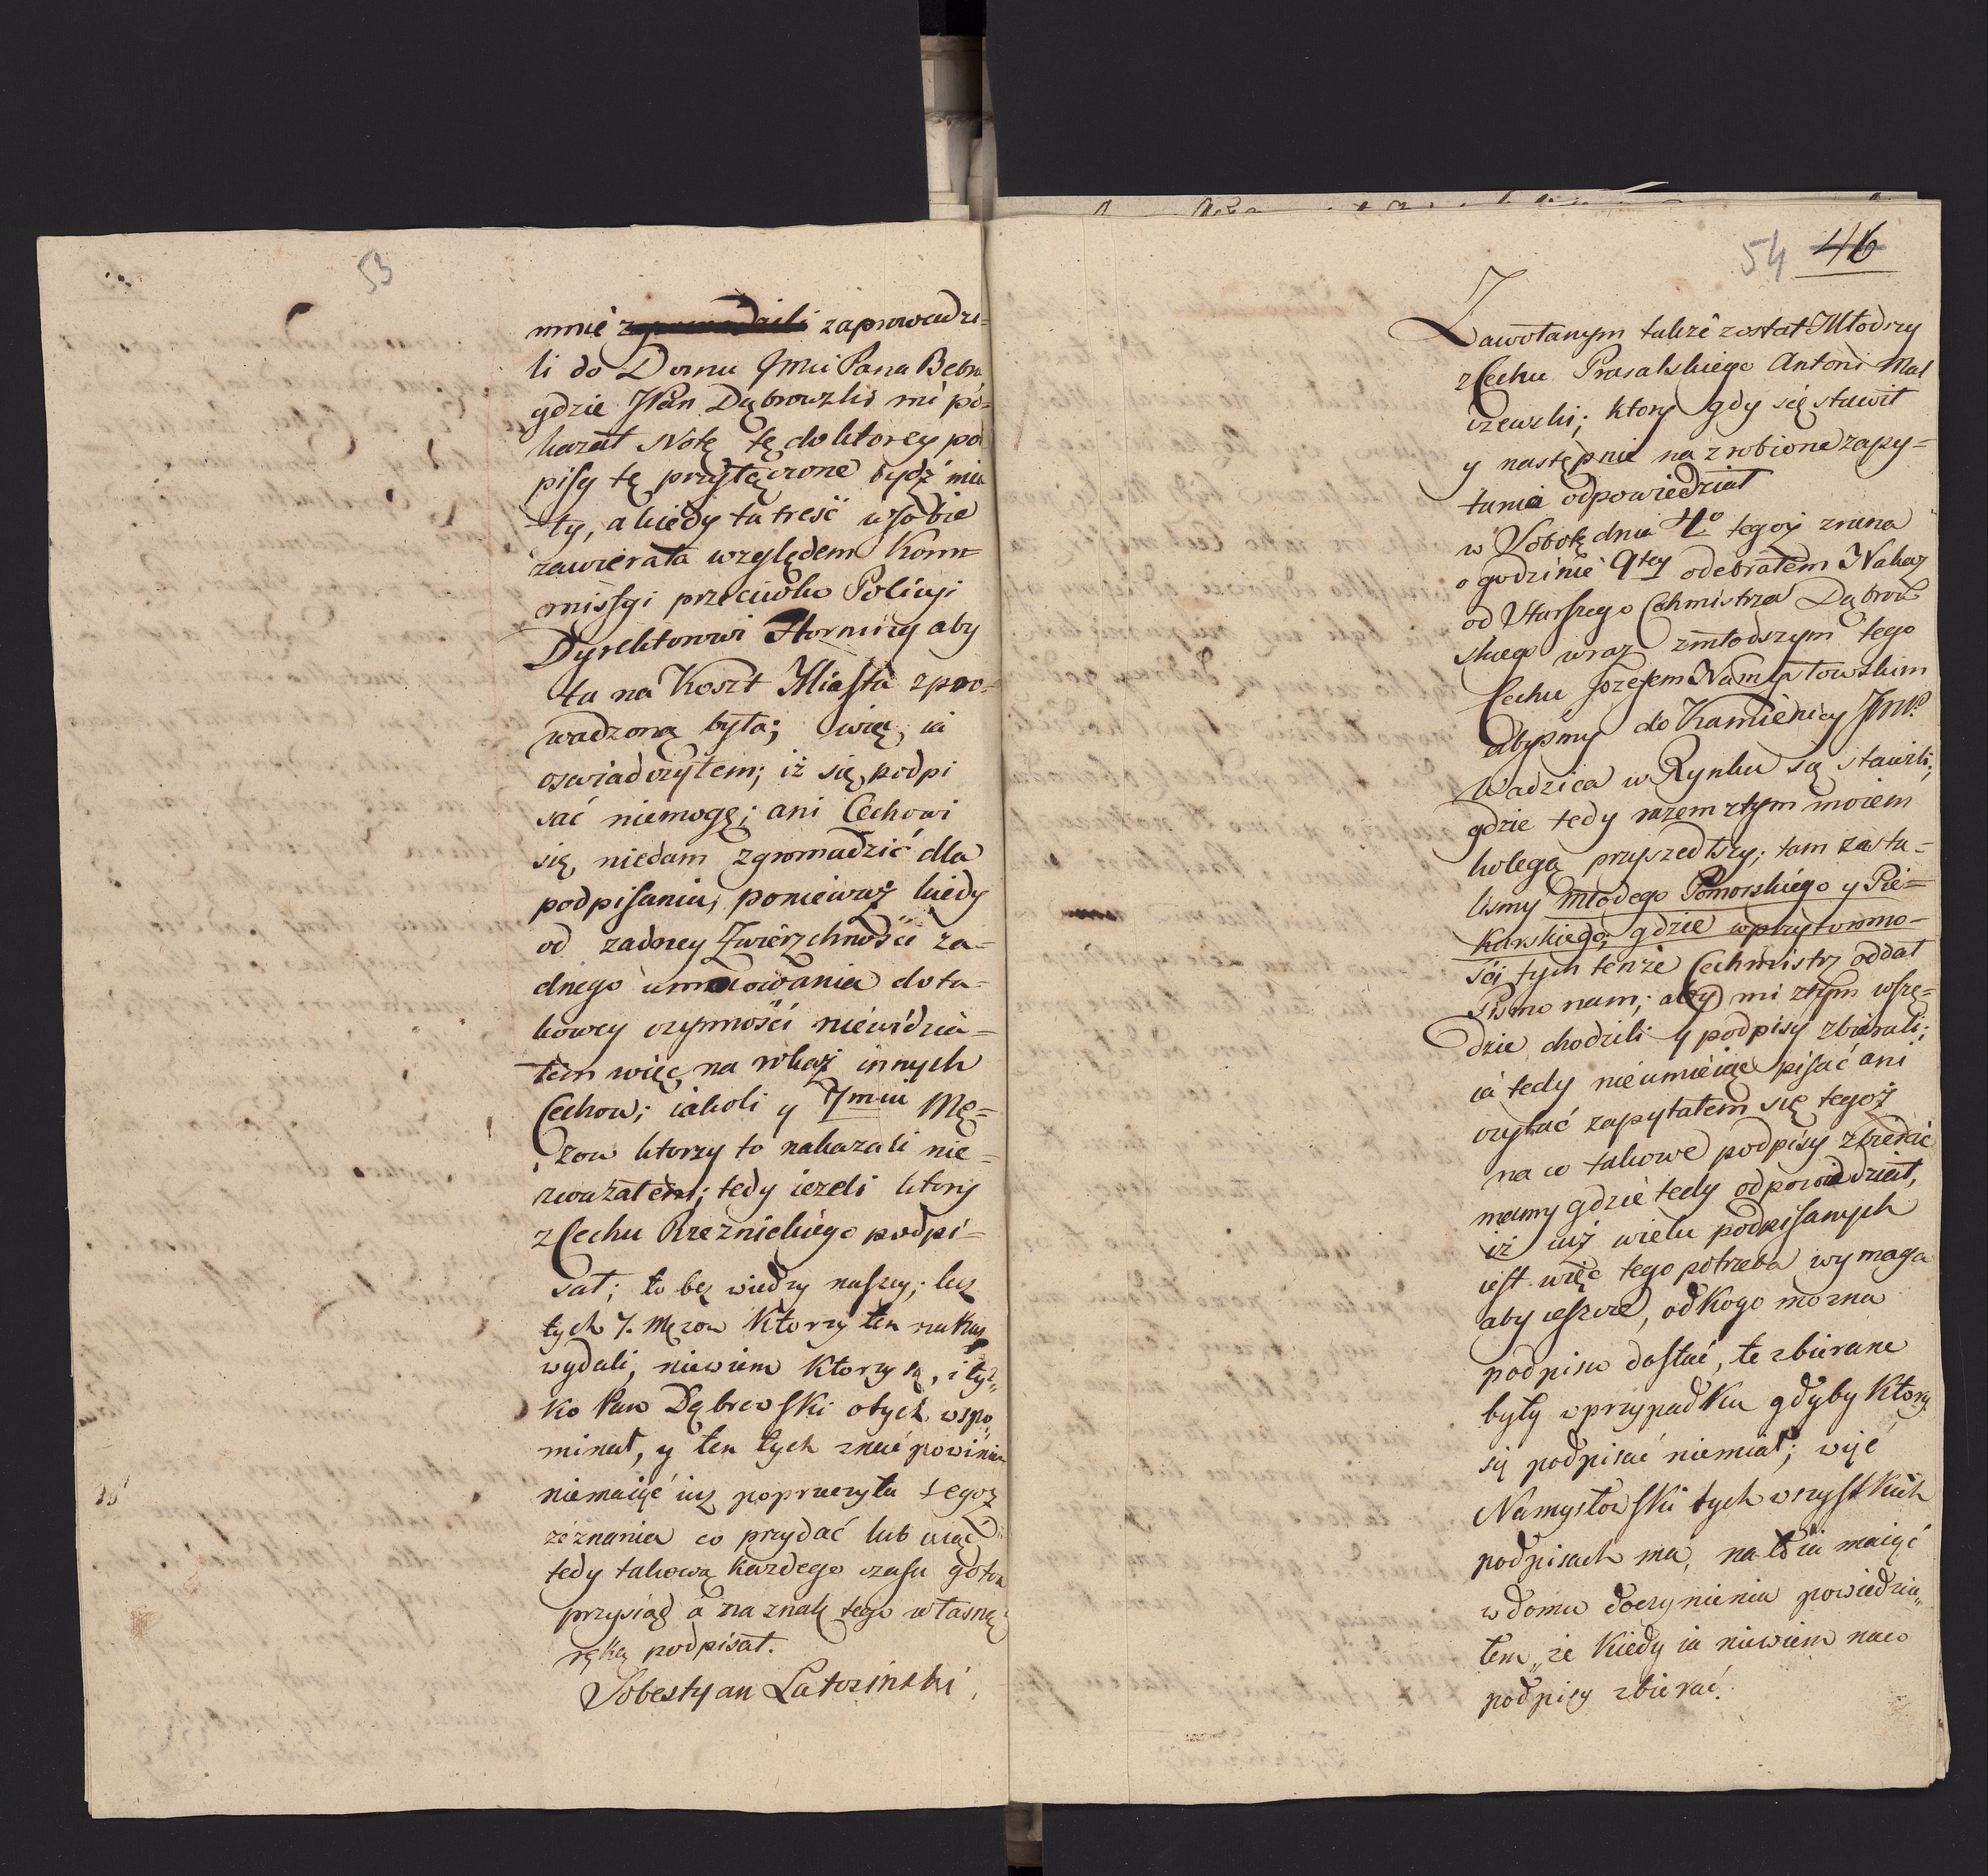 53
mnie zaprowadzi=
li do Domu Jmci Pana Bebra
gdzie JPan Dąbrowski mi po=
kazał Notę tę do ktorey pod
pisy tę przyłączone bydź mia
ły, a kiedy ta treść w sobie
zawierała względem Kom=
missyi przeciwko Policyi
Dyrektorowi aby
ta na Koszt Miasta zpro=
wadzoną była; więc ia
oswiadczyłem; iż się podpi
sać niemogę; ani Cechowi
się niedam zgromadzić dla
podpisania, poniewaz kiedy
od zadney Zwierzchności ża=
dnego umocowania do ta=
kowey czynności niewidzia=
łem więc na rozkaz innych
Cechow; iakoli y 7miu Mę=
żow ktorzy to nakazali nie=
zważałem; tedy iezeli ktory
z Cechu Rzeznickiego podpi=
sał; to bez wiedzy naszey; lecz
tych 7. Mężow Ktorzy ten nakaz
wydali, niewiem Ktorzy są, i tyl=
ko Pan Dąbrowski o tych wspo
minał, y ten tych znać powinien
niemaiąc iuz poprzeczyła tegoż
zeznania co przydać lub uiąć
tedy takową kazdego czasu gotow
przysiądz a na znak tego własną
ręką podpisał.
Sobestyan Latosinski
54 46
Zawołanym także został Młodszy
z Cechu Prasalskiego Antoni Mal
czewski; ktory gdy się stawił
y następnie na zrobione zapy=
tania odpowiedział
w Sobotę dnia 4o tegoż zrana
o godzinie 9tey odebrałem Nakaz
od Starszego Cechmistrza Dąbrow
skiego wraz z młodszym tego
Cechu Jozefem Namysłowskim
abysmy do Kamienicy JmP.
Wadzica w Rynku się stawili;
gdzie tedy razem z tym moiem
kolegą przyszedłszy; tam zasta=
lismy młodego Pomorskiego y Pie=
karskiego, gdzie w przytomno=
ści tych tenże Cechmistrz oddał
Pismo nam; aby mi z tym wszę=
dzie chodzili y podpisy zbierali;
ia tedy nieumieiąc pisać ani
czytać zapytałem się tegoż
na co takowe podpisy zbierać
mamy gdzie tedy odpowiedział,
iż iuż wielu podpisanych
iest więc tego potrzeba wymaga
aby ieszcze, od Kogo można
podpisu dostać, te zbierane
były w przypadku gdyby Ktory
się podpisać niemiał; więc
Namysłowski tych wszystkich
podpisach ma, na to ia maiąc
w domu doczynienia powiedzia„
łem, że Kiedy ia niewiem na co
podpisy zbierać.